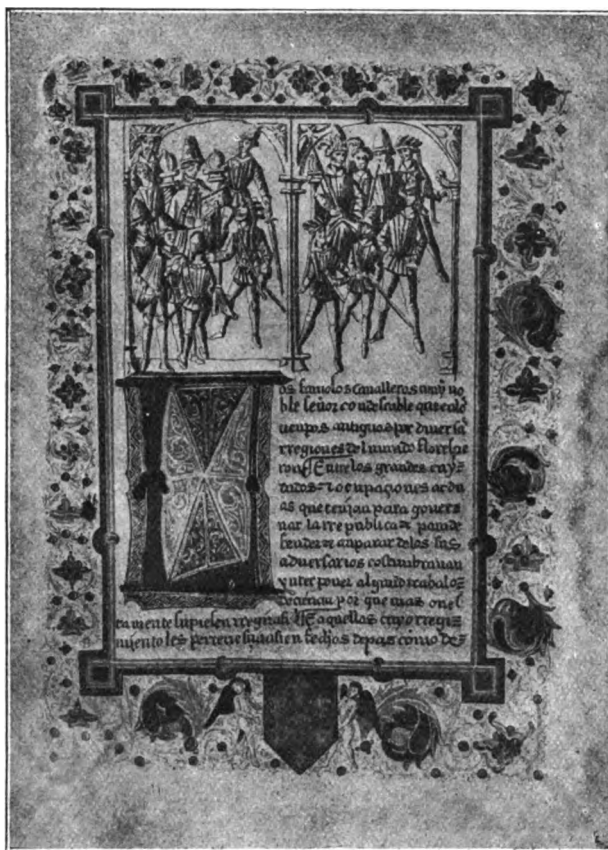 os famosos cavalleros muy no
ble señor condestable que
tienpos antiguos por diversas
rregiones del mundo florescie
ron Entre los grandes cuy
dados ⁊ ocupaciones ardu
as que tenian para gover
nar la rre publica ⁊ para de
fender ⁊ anparar de los sus
adversarios costumbravan
ynter poner algund trabalo
por que mas ones
ta mente supiesen rregir asi ⁊ aquellos cuyo rregi
miento les pertenesçia asi en fechos de pas como de